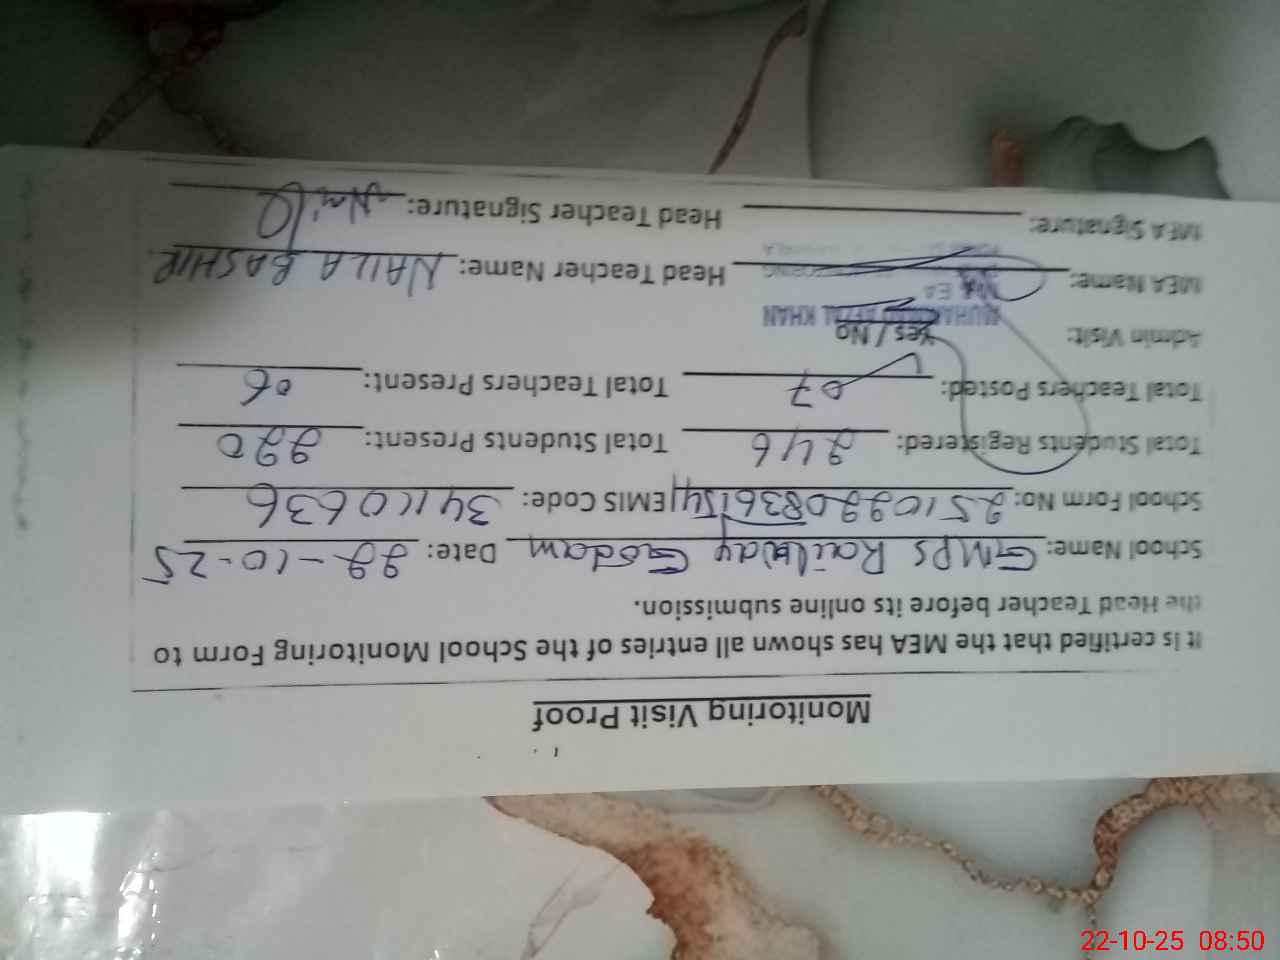 Monitoring Visit Proof
It is certified that the MEA has shown all entries of the School Monitoring Form to
the Head Teacher before its online submission.
School Name: GMPS Railway Godam Date: 22-10-25
School Form No: EMIS Code: 34110636
Total Students Registered: 246 Total Students Present: 220
Total Teachers Posted: 07 Total Teachers Present: 06
Admin Visit: Yes / No
MUHAMMAD AFZAL KHAN
MEA
MEA Name: Head Teacher Name: NAILA BASHIR.
MEA Signature: Head Teacher Signature: Naila
22-10-25 08:50